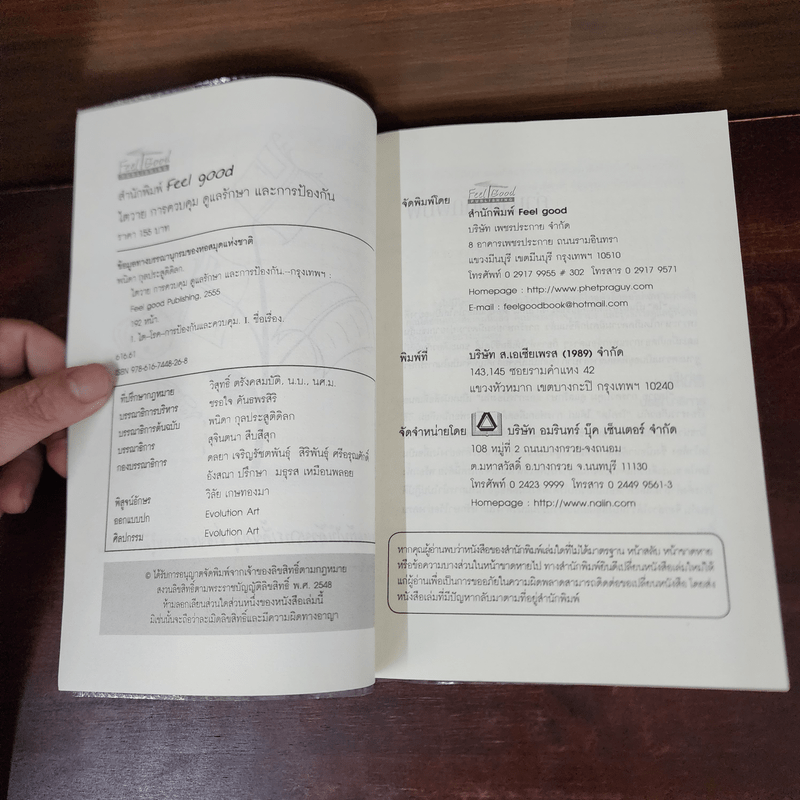 Feel Good
PUBLISHING
สำนักพิมพ์ Feel good
ไตวาย การควบคุม ดูแลรักษา และการป้องกัน
ราคา 158 บาท
ข้อมูลทางบรรณานุกรมของหอสมุดแห่งชาติ
พนิดา กุลประสูติดิลก.
ไตวาย การควบคุม ดูแลรักษา และการป้องกัน.--กรุงเทพฯ :
Feel good Publishing, 2555
192 หน้า.
1. ไต--โรค--การป้องกันและควบคุม. I. ชื่อเรื่อง.
616.61
ISBN 978-616-7448-26-8
ที่ปรึกษากฎหมาย วิสุทธิ์ ตรังคสมบัติ, น.บ., นศ.ม.
บรรณาธิการบริหาร ขรอใจ ตันอพรสิริ
บรรณาธิการต้นฉบับ พนิดา กุลประสูติดิลก
บรรณาธิการ สุจินตนา สืบสีสุก
กองบรรณาธิการ ดลยา เจริญรัชตพันธุ์ สิริพันธุ์ ศรีอรุณศักดิ์
อังสณา ปรึกษา มธุรส เหมือนพลอย
พิสูจน์อักษร วิลัย เกษทองมา
ออกแบบปก Evolution Art
ศิลปกรรม Evolution Art
© ได้รับการอนุญาตจัดพิมพ์จากเจ้าของลิขสิทธิ์ตามกฎหมาย
สงวนลิขสิทธิ์ตามพระราชบัญญัติลิขสิทธิ์ พ.ศ. 2548
ห้ามลอกเลียนส่วนใดส่วนหนึ่งของหนังสือเล่มนี้
มิเช่นนั้นจะถือว่าละเมิดลิขสิทธิ์และมีความผิดทางอาญา
Feel Good
PUBLISHING
จัดพิมพ์โดย สำนักพิมพ์ Feel good
บริษัท เพชรประกาย จำกัด
8 อาคารเพชรประกาย ถนนรามอินทรา
แขวงมีนบุรี เขตมีนบุรี กรุงเทพฯ 10510
โทรศัพท์ 0 2917 9955 # 302 โทรสาร 0 2917 9571
Homepage : http://www.phetpraguy.com
E-mail : feelgoodbook@hotmail.com
พิมพ์ที่ บริษัท ส.เอเซียเพรส (1989) จำกัด
143,145 ซอยรามคำแหง 42
แขวงหัวหมาก เขตบางกะปิ กรุงเทพฯ 10240
จัดจำหน่ายโดย บริษัท อมรินทร์ บุ๊ค เซ็นเตอร์ จำกัด
108 หมู่ที่ 2 ถนนบางกรวย-จงถนอม
ต.มหาสวัสดิ์ อ.บางกรวย จ.นนทบุรี 11130
โทรศัพท์ 0 2423 9999 โทรสาร 0 2449 9561-3
Homepage : http://www.naiin.com
หากคุณผู้อ่านพบว่าหนังสือของสำนักพิมพ์เล่มใดที่ไม่ได้มาตรฐาน หน้าสลับ หน้าขาดหาย
หรือข้อความบางส่วนในหน้าขาดหายไป ทางสำนักพิมพ์ยินดีเปลี่ยนหนังสือเล่มใหม่ให้
แก่ผู้อ่านเพื่อเป็นการขออภัยในความผิดพลาดสามารถติดต่อขอเปลี่ยนหนังสือ โดยส่ง
หนังสือเล่มที่มีปัญหากลับมาตามที่อยู่สำนักพิมพ์